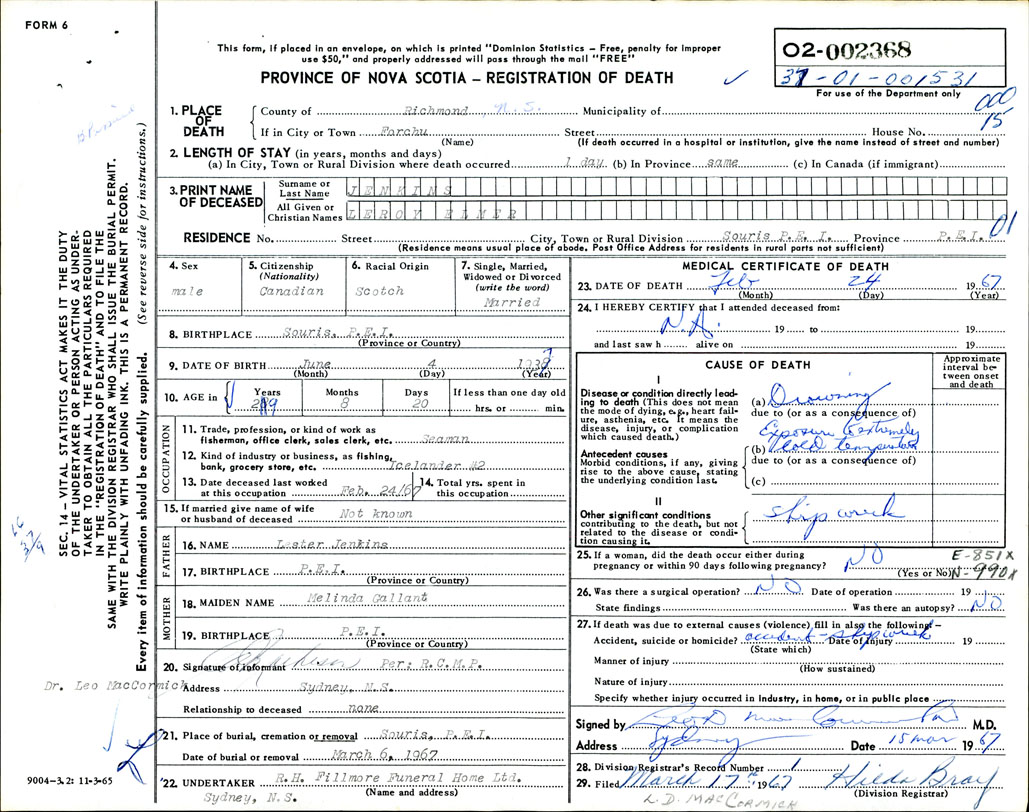 FORM 6
This form, if placed in an envelope, on which is printed "Dominion Statistics – Free, penalty for improper
use $50," and properly addressed will pass through the mail "FREE"
PROVINCE OF NOVA SCOTIA – REGISTRATION OF DEATH
02-002368
37-01-001531
For use of the Department only
000
15
1. PLACE OF DEATH
County of Richmond, N.S. Municipality of
If in City or Town Forchu Street House No.
(Name) (If death occurred in a hospital or institution, give the name instead of street and number)
2. LENGTH OF STAY (in years, months and days)
(a) In City, Town or Rural Division where death occurred 1 day (b) In Province same (c) In Canada (if immigrant)
3. PRINT NAME OF DECEASED
Surname or Last Name JENKINS
All Given or Christian Names LEROY ELMER
01
RESIDENCE No. Street City, Town or Rural Division Souris P.E.I. Province P.E.I.
(Residence means usual place of abode. Post Office Address for residents in rural parts not sufficient)
4. Sex
male
5. Citizenship (Nationality)
Canadian
6. Racial Origin
Scotch
7. Single, Married, Widowed or Divorced (write the word)
Married
8. BIRTHPLACE Souris, P.E.I.
(Province or Country)
9. DATE OF BIRTH June 4
(Month) (Day) (Year)
10. AGE in Years Months 8 Days 20 If less than one day old hrs. or min.
OCCUPATION
11. Trade, profession, or kind of work as fisherman, office clerk, sales clerk, etc. Seaman
12. Kind of industry or business, as fishing, bank, grocery store, etc. Icelander #2
13. Date deceased last worked at this occupation Feb. 24/67
14. Total yrs. spent in this occupation
15. If married give name of wife or husband of deceased Not known
FATHER
16. NAME Lester Jenkins
17. BIRTHPLACE P.E.I.
(Province or Country)
MOTHER
18. MAIDEN NAME Melinda Gallant
19. BIRTHPLACE P.E.I.
(Province or Country)
20. Signature of informant Per: R.C.M.P.
Address Sydney, N.S.
Relationship to deceased none
21. Place of burial, cremation or removal Souris, P.E.I.
Date of burial or removal March 6, 1967
22. UNDERTAKER R.H. Fillmore Funeral Home Ltd.
(Name and address)
Sydney, N.S.
MEDICAL CERTIFICATE OF DEATH
23. DATE OF DEATH Feb 24 1967
(Month) (Day) (Year)
24. I HEREBY CERTIFY that I attended deceased from:
N.A. 19 to 19
and last saw h alive on 19
CAUSE OF DEATH
Approximate interval between onset and death
I
Disease or condition directly leading to death (This does not mean the mode of dying, e.g., heart failure, asthenia, etc. It means the disease, injury, or complication which caused death.)
(a) Drowning
due to (or as a consequence of)
Exposure to extremely
(b) cold temperature
due to (or as a consequence of)
(c)
Antecedent causes
Morbid conditions, if any, giving rise to the above cause, stating the underlying condition last.
II
Other significant conditions contributing to the death, but not related to the disease or condition causing it.
shipwreck
25. If a woman, did the death occur either during pregnancy or within 90 days following pregnancy? NO
(Yes or No)
E-851X
N-990X
26. Was there a surgical operation? NO Date of operation 19
State findings Was there an autopsy? NO
27. If death was due to external causes (violence) fill in also the following–
Accident, suicide or homicide? accident - shipwreck Date of injury 19
(State which)
Manner of injury
(How sustained)
Nature of injury
Specify whether injury occurred in industry, in home, or in public place
Signed by M.D.
Address Sydney Date 15 Mar 1967
28. Division Registrar's Record Number 1
29. Filed March 17th 1967 Hilda Bray
(Division Registrar)
L.D. MACCORMICK
SEC. 14 – VITAL STATISTICS ACT MAKES IT THE DUTY
OF THE UNDERTAKER OR PERSON ACTING AS UNDER-
TAKER TO OBTAIN ALL THE PARTICULARS REQUIRED
IN THE "REGISTRATION OF DEATH" AND TO FILE THE
SAME WITH THE DIVISION REGISTRAR WHO SHALL ISSUE THE BURIAL PERMIT.
WRITE PLAINLY WITH UNFADING INK. THIS IS A PERMANENT RECORD.
Every item of information should be carefully supplied. (See reverse side for instructions.)
Dr. Leo MacCormick
9004-3.2: 11-3-65